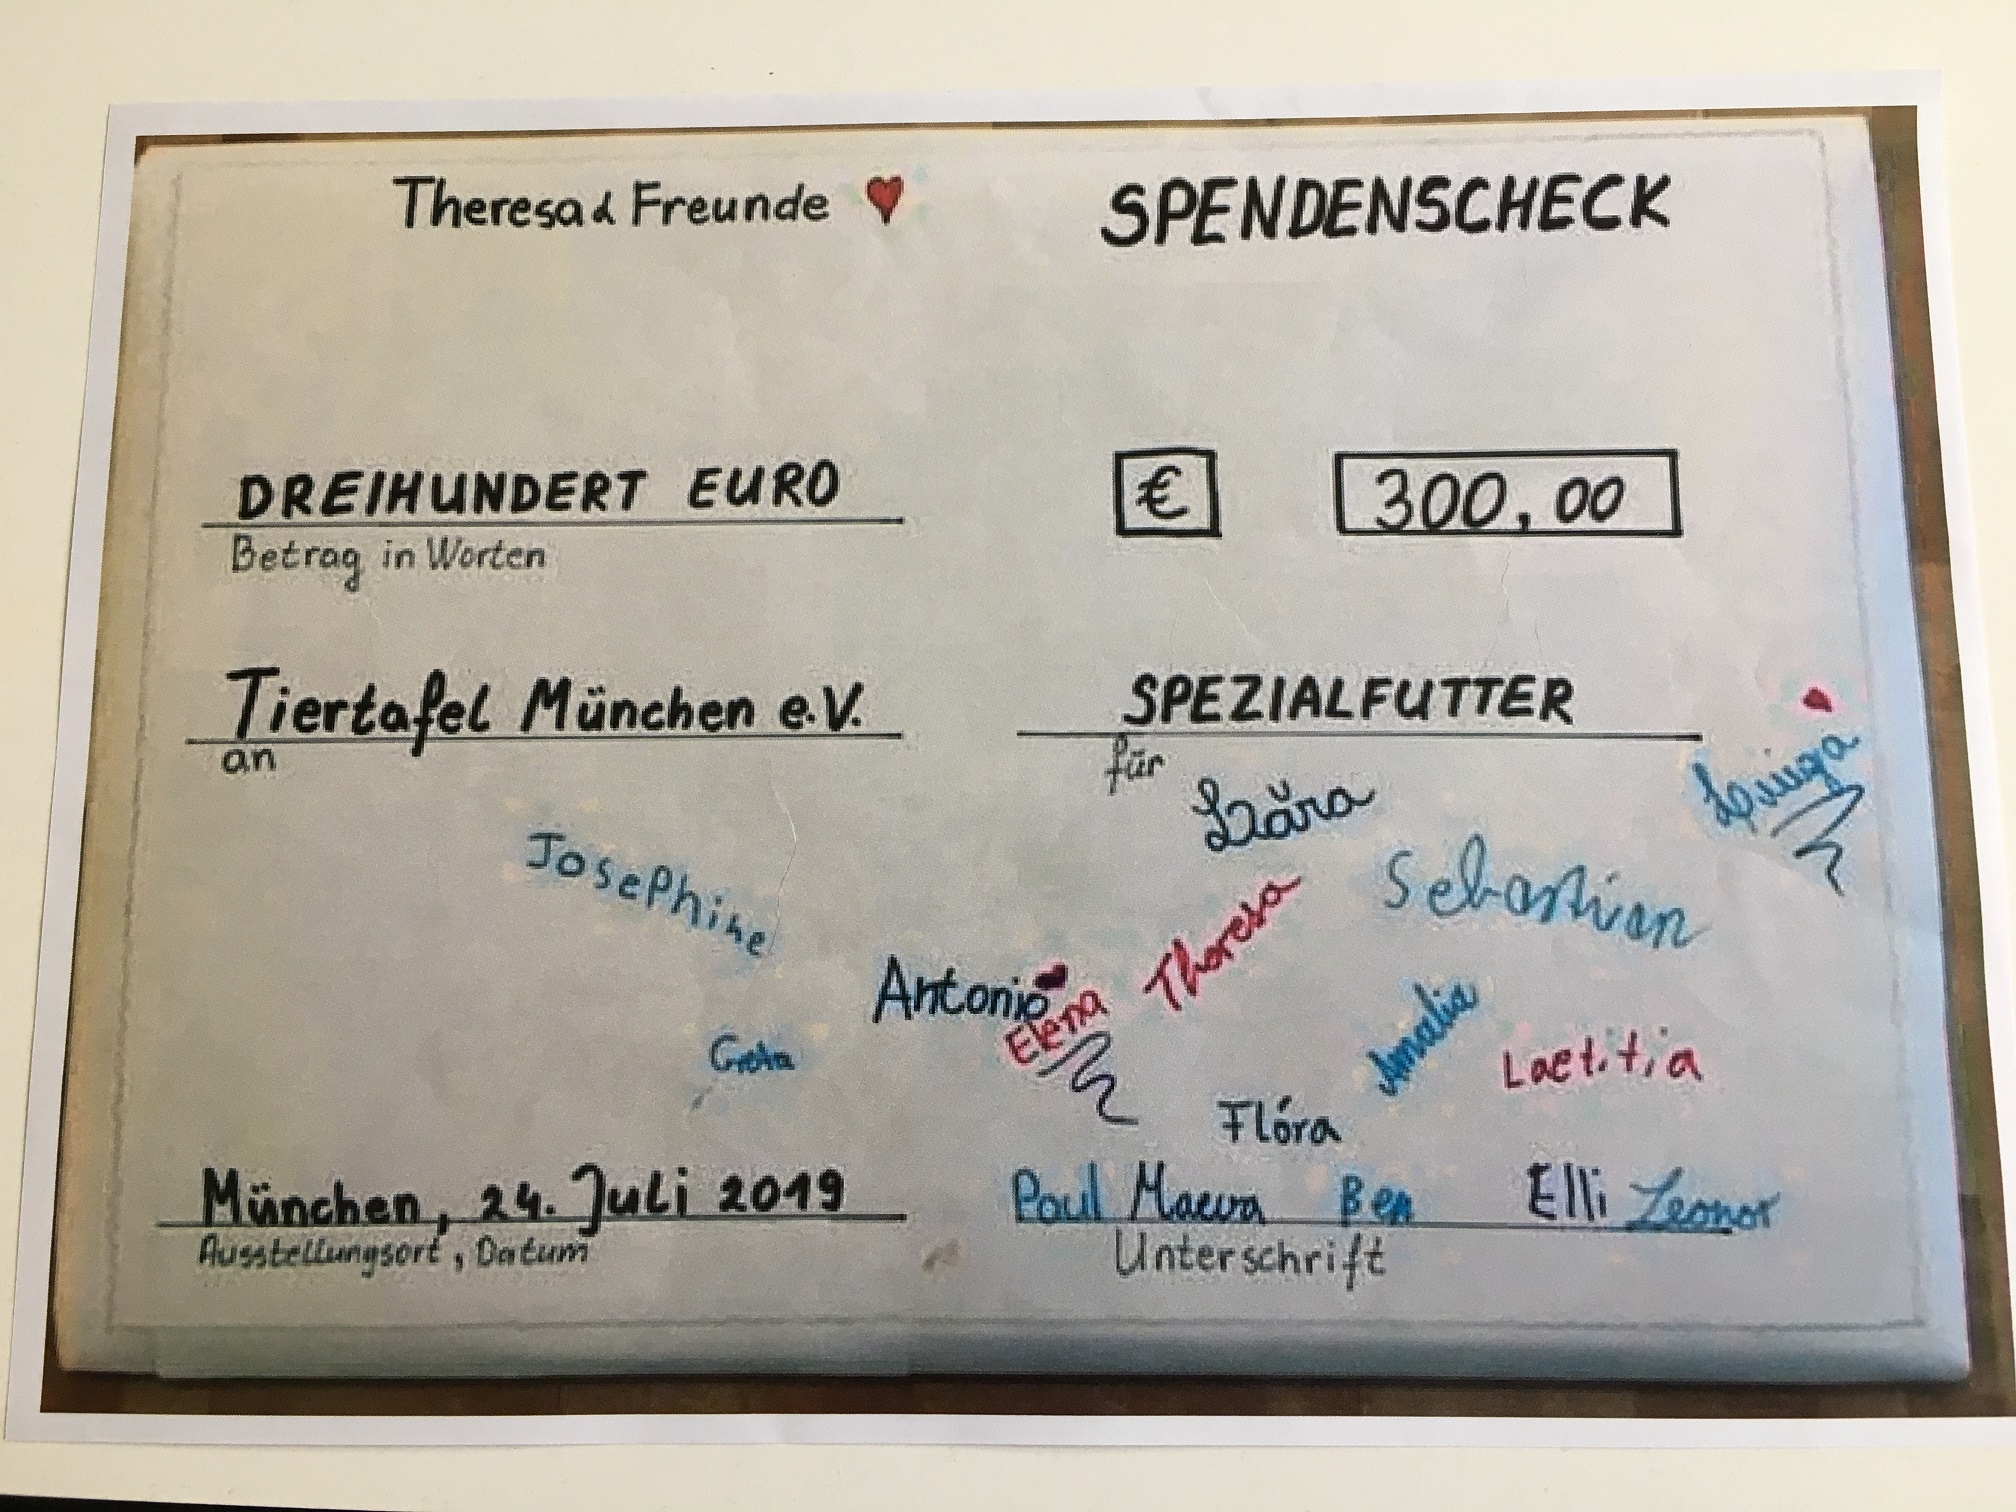 Theresa & Freunde ♥ SPENDENSCHECK
DREIHUNDERT EURO € 300,00
Betrag in Worten
Tiertafel München e.V. SPEZIALFUTTER
an für
Luiga
Josephine
Sebastian
Antonio
Elena
Theresa
Amalia
Greta
Laetitia
Flóra
München, 24. Juli 2019 Paul Maeva Ben Elli Leonor
Ausstellungsort, Datum Unterschrift